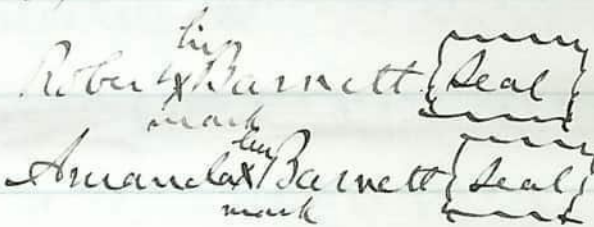 his
Robert X Barnett {Seal}
mark
her
Amanda X Barnett {Seal}
mark